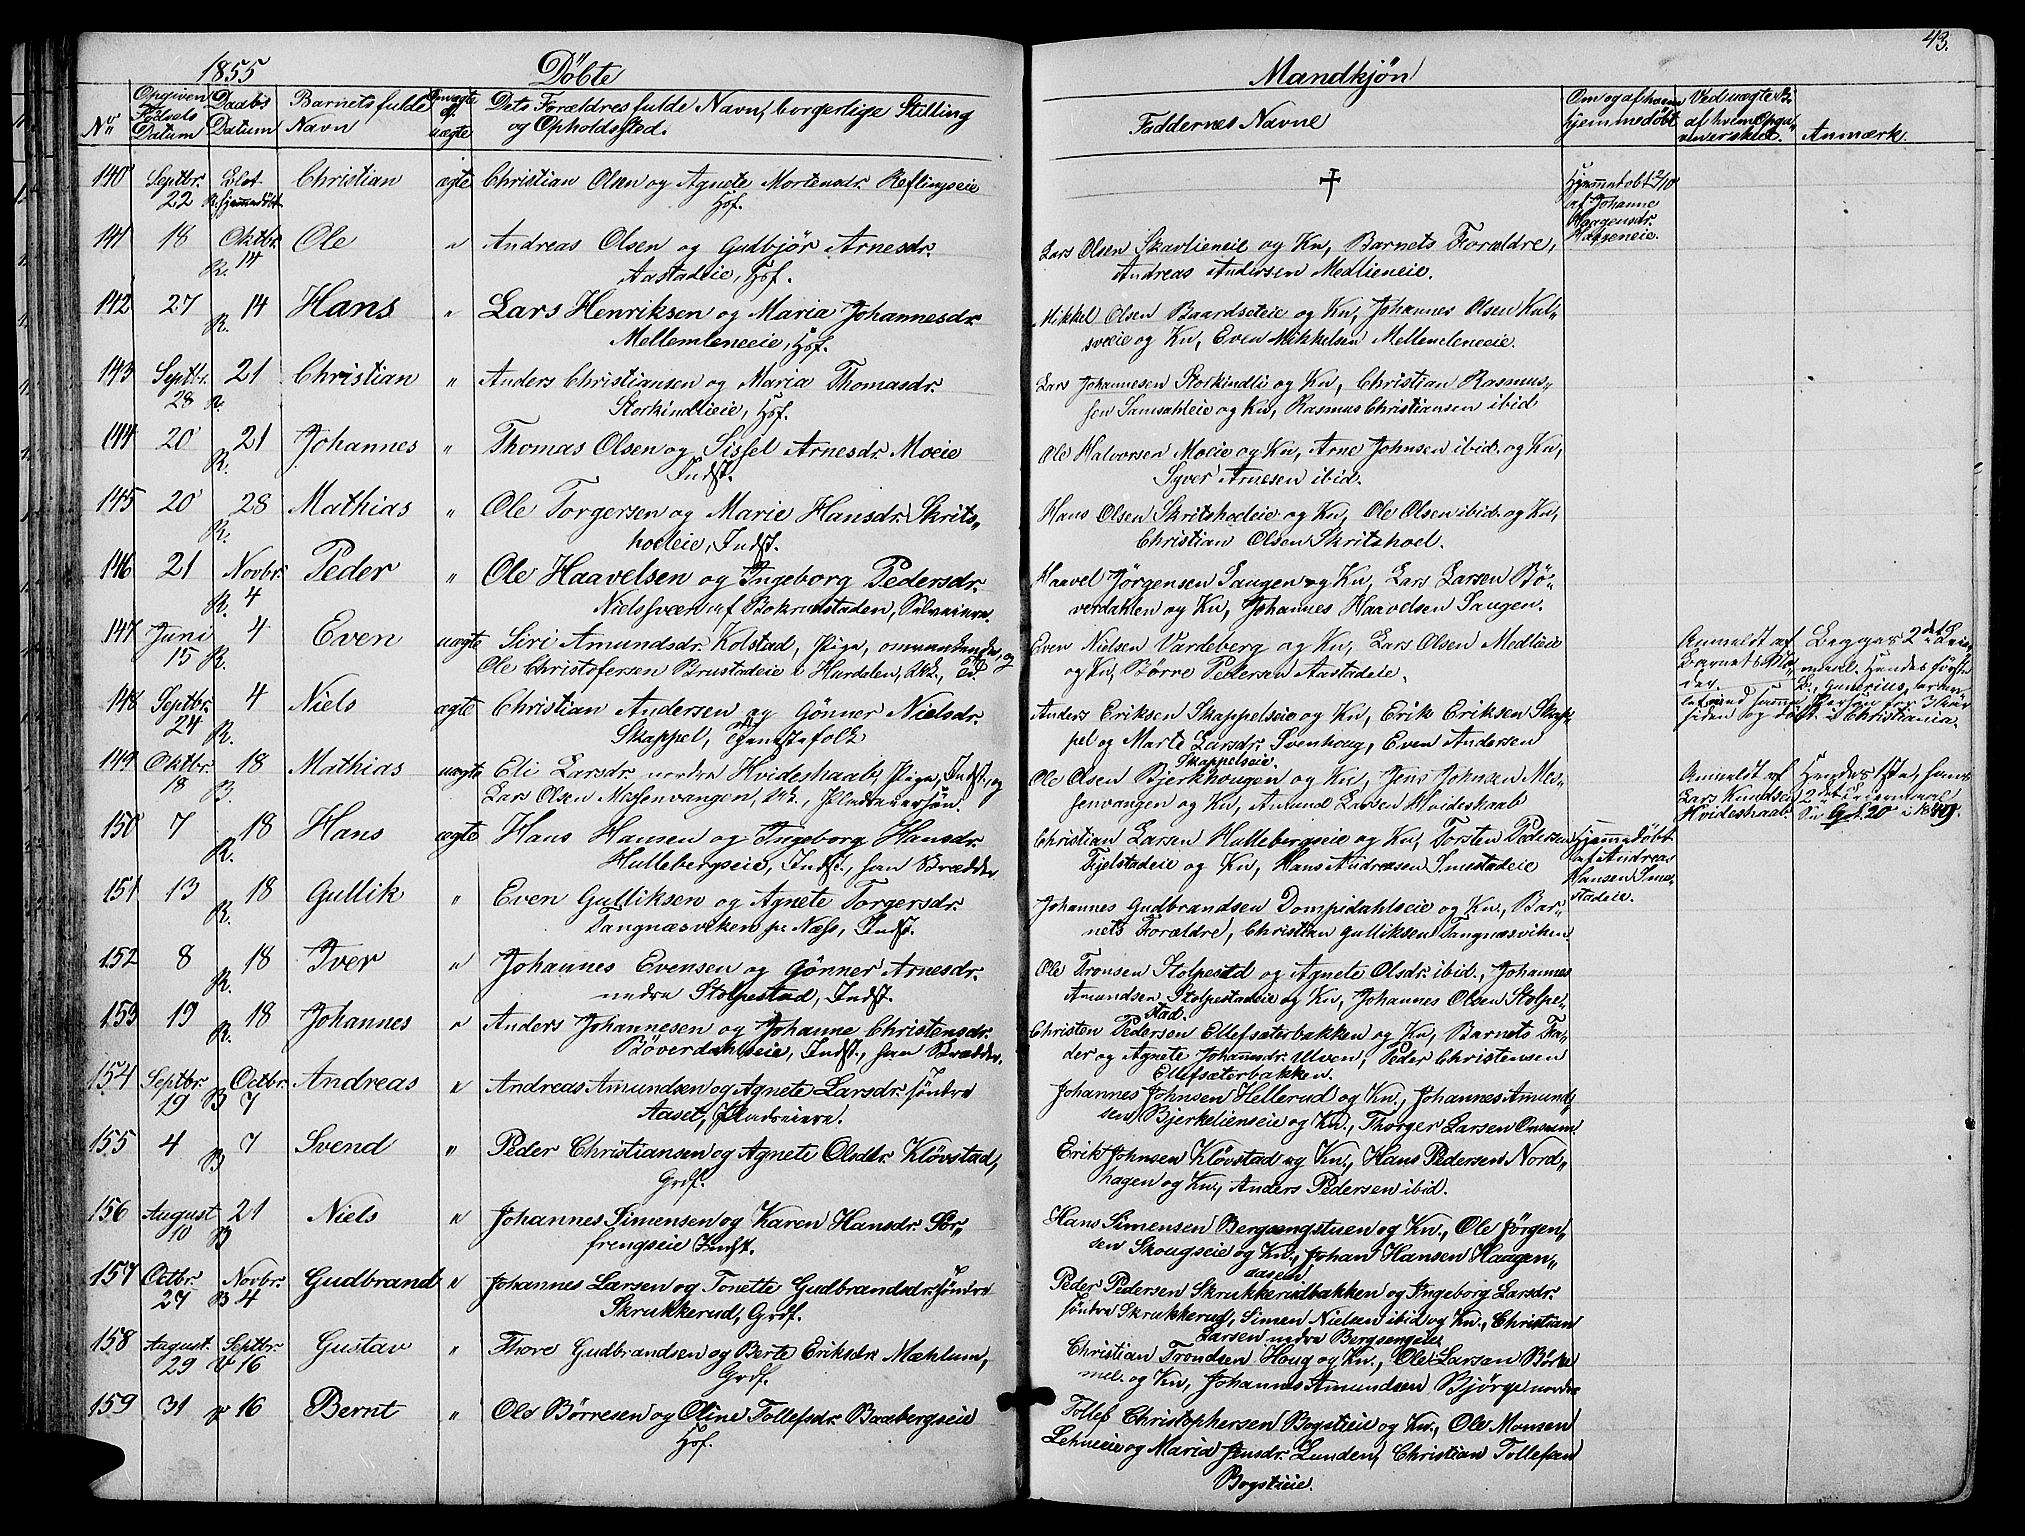 43.
1855 Döbte Mandkjön
No. Opgiven Födsels Datum Daabs Datum Barnets fulde Navn Om ægte el. uægte Dets Forældres fulde Navn, borgerlige Stilling og Opholdssted. Faddernes Navne Om og af hvem hjemmedöbt Ved uægte B: af hvem Opgaven er skeet. Anmærk.
140 Septbr. 22 hjemmedöbt Christian ægte Christian Olsen og Agnete Mortensdr. Reflingseie
Hsf. † Hjemmedöbt 2/10 af Johanne Haagensdr. Haggeneie.
141 18 Oktbr. 14 R. Ole " Andreas Olsen og Gudbjör Arnesdr.
Aastadeie, Hsf.
Lars Olsen Skavlieneie og Kn, Barnets Forældre,
Andreas Andersen Medlieneie.
142 27 R. 14 Hans " Lars Henriksen og Maria Johannesdr.
Mellemleneeie, Hsf.
Mikkel Olsen Baardseteie og Kn, Johannes Olsen Kal-
sveeie og Kn, Even Mikkelsen Mellemleneeie.
143 Septbr. 28 R. 21 Christian " Anders Christiansen og Maria Thomasdr.
Storkindlieie, Hsf.
Lars Johannesen Storkindli og Kn, Christian Rasmus-
sen Samsahleie og Kn, Rasmus Christiansen ibid
144 20 R. 21 Johannes " Thomas Olsen og Sissel Arnesdr. Moeie
Indst.
Ole Halvorsen Moeie og Kn, Arne Johnsen ibid. og Kn,
Syver Arnesen ibid.
145 20 R. 28 Mathias " Ole Torgersen og Marie Hansdr. Skrits-
hoeleie, Indst.
Hans Olsen Skritshoeleie og Kn, Ole Olsen ibid. og Kn,
Christian Olsen Skritshoel.
146 21 Novbr. R. 4 Peder " Ole Haavelsen og Ingeborg Pedersdr.
Nielssveen af Bokrudstaden, Selveiere.
Haavel Jörgensen Saugen og Kn, Lars Larsen Bö-
verdahlen og Kn, Johannes Haavelsen Saugen.
147 Juni 15 R. 4 Even uægte Siri Amundsdr. Kolstad, Pige, og
Ole Christofersen Brustadeie i Hurdalen, Uk.
Even Nielsen Vardeberg og Kn, Lars Olsen Medlieie
og Kn, Börre Pedersen Aastadeie.
Anmeldt af Barnets Moder. Begges 2det Leiermaal. Hendes förste
148 Septbr. 24 R. 4 Niels ægte Christian Andersen og Gönner Nielsdr.
Skappel, Tjenestefolk
Anders Eriksen Skappelseie og Kn, Erik Eriksen Skap-
pel og Marte Larsdr. Svenhoug, Even Andersen
Skappelseie.
siden og döbt i Christiania.
149 Oktbr. 18 B. 18 Mathias uægte Eli Larsdr. nordre Hvideshaab, Pige, Indst. og
Lars Olsen Messenvangen, Uk., Pladseiersön.
Ole Olsen Bjerkhougen og Kn, Jens Johnsen Mes-
senvangen og Kn, Amund Larsen Hvideshaab
Anmeldt af Lars Knudsen Hvideshaab. Hendes 1ste, hans 2det Leiermaal
150 7 R. 18 Hans ægte Hans Hansen og Ingeborg Hansdr.
Hullebergseie, Indst., han Brædder
Christian Larsen Hullebergseie og Kn, Torsten Pedersen
Fjelstadeie og Kn, Hans Andreasen Smestadeie
Hjemmedöbt af Andreas Hansen Smestadeie.
151 13 R. 18 Gullik " Even Gulliksen og Agnete Torgersdr.
Tangnæsviken pr Næss, Indst.
Johannes Gudbrandsen Dompidahlseie og Kn, Bar-
nets Forældre, Christian Gulliksen Tangnæsviken.
152 8 R. 18 Iver " Johannes Evensen og Gönner Arnesdr.
nedre Stolpestad, Indst.
Ole Tronsen Stolpestd og Agnete Olsdr. ibid., Johannes
Amundsen Stolpestadeie og Kn, Johannes Olsen Stolpe-
stad.
153 19 R. 18 Johannes " Anders Johannesen og Johanne Christensdr.
Böverdahlseie, Indst., han Brædder.
Christen Pedersen Ellefsæterbakken og Kn, Barnets Fa-
der og Agnete Johannsdr. Ulven, Peder Christensen
Ellefsæterbakken.
154 Septbr. 19 Octbr. B 7 Andreas " Andreas Amundsen og Agnete Larsdr. söndre
Aaset, Pladseiere.
Johannes Johnsen Hellerud og Kn., Johannes Amund-
sen Bjerkelienseie og Kn., Thorger Larsen Onsum.
155 4 B 7 Svend " Peder Christiansen og Agnete Olsdtr. Klövstad,
Grdf.
Erik Johnsen Klövstad og Kn., Hans Pedersen Nord-
hagen og Kn., Anders Pedersen ibid.
156 August 10 B 21 Niels " Johannes Simensen og Karen Hansdr. Sör-
frengseie Indst.
Hans Simensen Bergsengstuen og Kn., Ole Jörgen-
sen Skougseie og Kn., Johan Hansen Haagen-
aasen.
157 Octbr. 27 Novbr. B 4 Gudbrand " Johannes Larsen og Tonette Gudbrandsdr. söndre
Skrukkerud, Grdf.
Peder Pedersen Skrukkerudbakken og Ingeborg Larsdr.
söndre Skrukkerud, Simen Nielsen ibid og Kn., Christian
Larsen nedre Bergsengeie
158 August. 29 Septbr. 16 Gustav " Thore Gudbrandsen og Berte Eriksdr. Mæhlum,
Grdf.
Christian Trondsen Houg og Kn., Ole Larsen Börke
mel. og Kn, Johannes Amundsen Björge nordre
159 31 16 Bernt " Ole Börresen og Oline Tollefsdr. Baabergseie
Hsf.
Tollef Christophersen Bogstieie og Kn., Ole Monsen
Lehneie og Maria Jensdr. Lunden, Christian Tollefsen
Bogstieie.